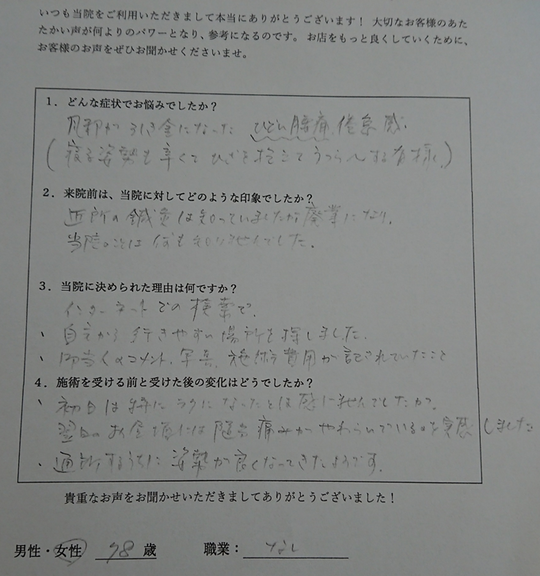 いつも当院をご利用いただきまして本当にありがとうございます！ 大切なお客様のあた
たかい声が何よりのパワーとなり、参考になるのです。お店をもっと良くしていくために、
お客様のお声をぜひお聞かせくださいませ。
1．どんな症状でお悩みでしたか？
風邪が引き金になった ひどい腰痛、倦怠感。
(寝る姿勢も辛くて ひざを抱こてうつらうつらする有様。)
2．来院前は、当院に対してどのような印象でしたか？
近所の鍼灸は知っていましたが廃業になり、
当院のことは何も知りませんでした。
3．当院に決められた理由は何ですか？
インターネットでの検索で。
、自宅から行きやすい場所を探しました。
、コメント、写真、施術費用が記されていたこと
4．施術を受ける前と受けた後の変化はどうでしたか？
、初日は特にラクになったとは感じませんでしたが、
翌日の 痛みがやわらいでいるのを実感しました
、通院するうちに姿勢が良くなってきたようです。
貴重なお声をお聞かせいただきましてありがとうございました！
男性・女性 78 歳 職業：なし